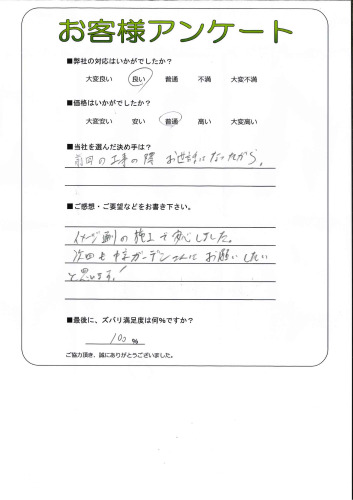 お客様アンケート
■弊社の対応はいかがでしたか?
大変良い 良い 普通 不満 大変不満
■価格はいかがでしたか?
大変安い 安い 普通 高い 大変高い
■当社を選んだ決め手は?
前回の工事の際 お世話になったから。
■ご感想・ご要望などをお書き下さい。
イメージ通りの施工で安心しました。
次回も ガーデンさんにお願いしたい
と思います!
■最後に、ズバリ満足度は何%ですか?
100 %
ご協力頂き、誠にありがとうございました。